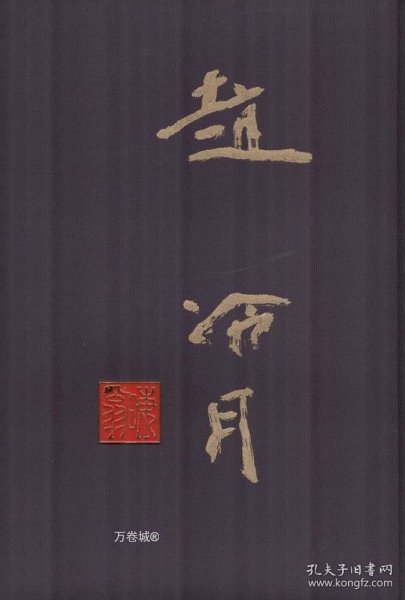 趙
冷月
万卷城®
孔夫子旧书网
www.kongfz.com